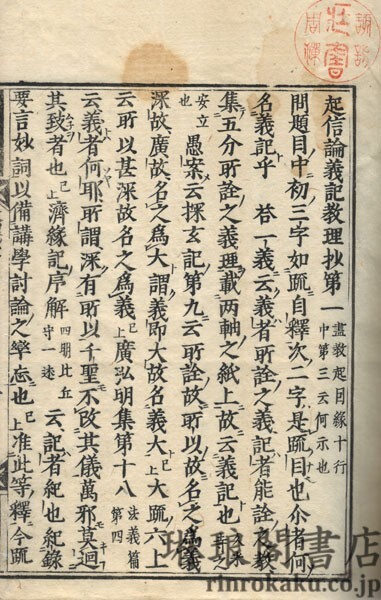 起信論義記教理抄第一 盡教起因緣十行
中第三云何示也
問題目中初三字如疏自釋次二字是疏目也尒者何
名義記乎 荅一義云義者所詮之義記者能詮之教
集五分所詮之義理載兩軸之紙上故云義記也
安立
也 愚案云探玄記第九云所詮故所以故名之爲義
深故廣故名之爲大謂義即大故名義大上大疏六上
云所以甚深故名之爲義上廣弘明集第十八 法義篇
第四
云義者何耶所謂深有所以千聖不改其儀萬邪莫迴
其致者也已上濟緣記序解 四明比丘
守一述 云記者紀也紀錄
要言妙詞以備講學討論之卒忘也已上准此等釋今疏
琳琅閣書店
rinrokaku.co.jp